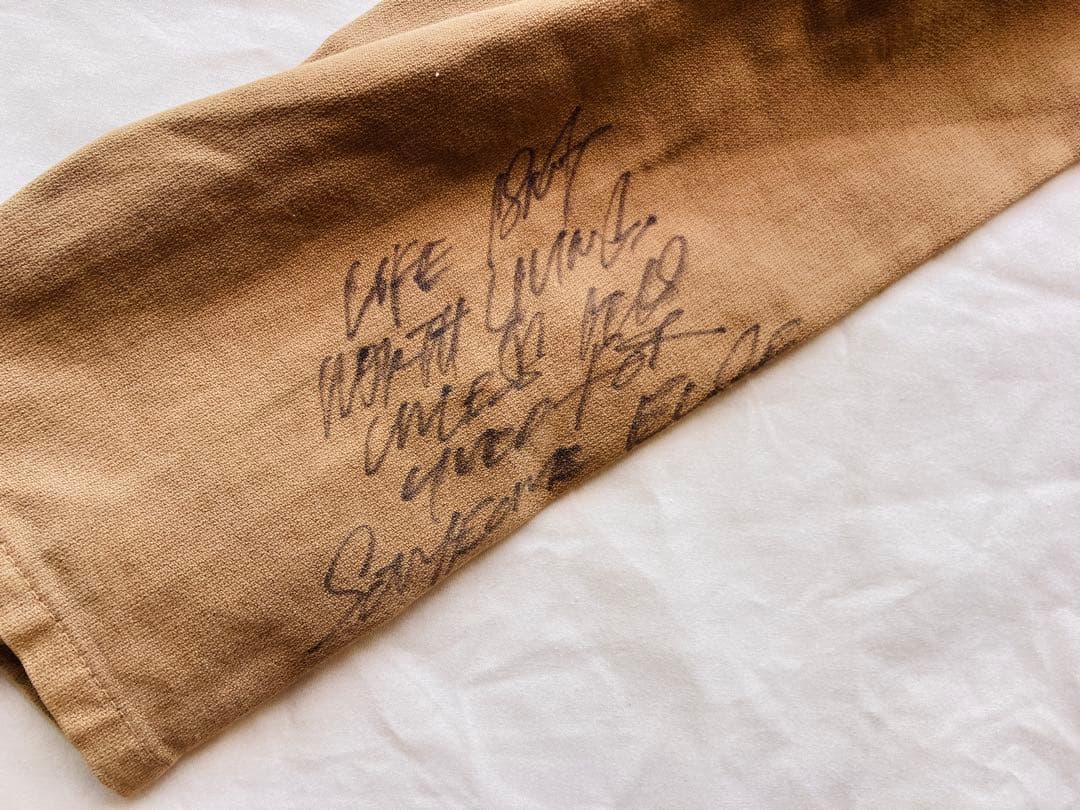 LIFE ISN'T
WORTH LIVING.
UNLESS
GIVEN FOR
SOMEONE ELSE